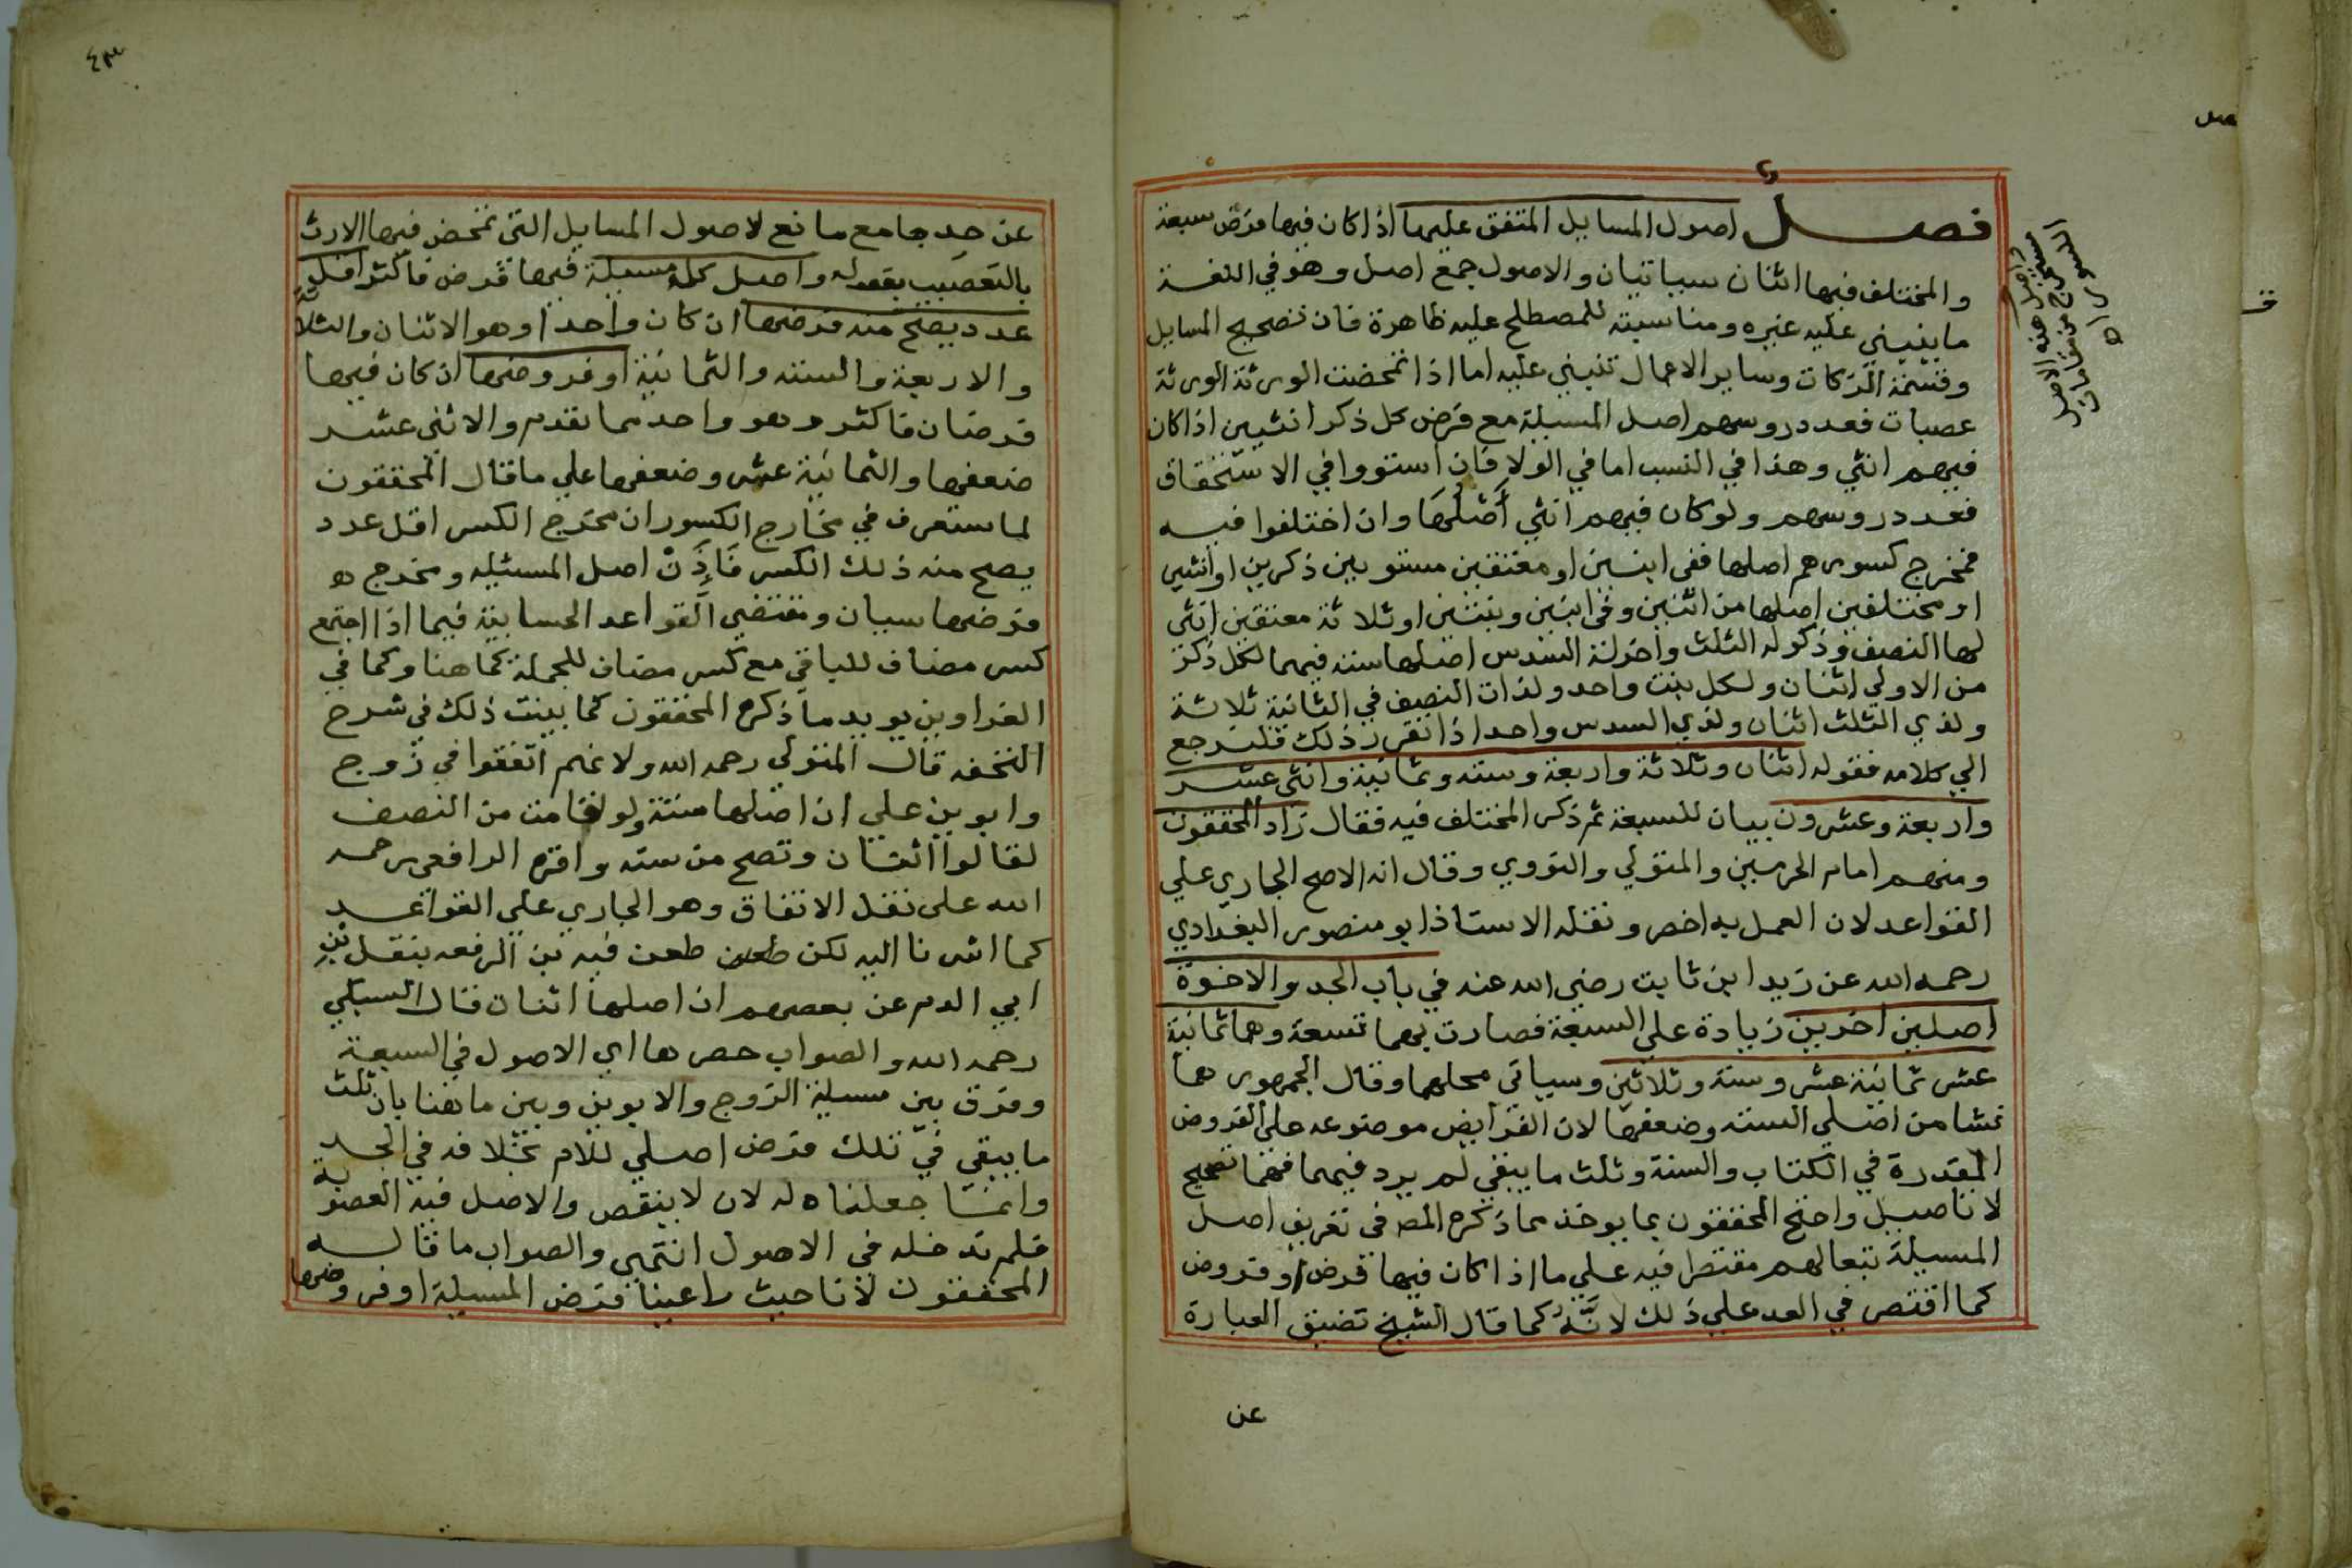 فصل اصول المسايل المتفق عليها اذا كان فيها فرض سبعة
والمختلف فيها اثنان سياتيان والاصول جمع اصل وهو في اللغة
ما ينبني عليه غيره ومناسبته للمصطلح عليه ظاهرة فان تصحيح المسايل
وقسمة التركات وساير الاعمال تنبني عليه اما اذا تمحضت الورثة الورثة
عصبات فعدد روسهم اصل المسيلة مع فرض كل ذكر انثيين اذا كان
فيهم انثي وهذا في النسب اما في الولا فان استووا في الاستحقاق
فعدد روسهم ولو كان فيهم انثي أَصْلُهَا وان اختلفوا فيه
فمخرج كسورهم اصلها ففي ابنين او معتقين مستويين ذكرين او انثيين
او مختلفين اصلها من اثنين وفي ابنين وبنتين او ثلاثة معتقين انثي
لها النصف وذكر له الثلث واخر له السدس اصلها ستة فيهما لكل ذكر
من الاولي اثنان ولكل بنت واحد ولذات النصف في الثانية ثلاثة
ولذي الثلث اثنان ولذي السدس واحد اذا تقرر ذلك فلنرجع
الي كلامه فقوله اثنان وثلاثة واربعة وستة وثمانية واثني عشر
واربعة وعشرون بيان للسبعة ثم ذكر المختلف فيه فقال زاد المحققون
ومنهم امام الحرمين والمتولي والنووي وقال انه الاصح الجاري علي
القواعد لان العمل به اخصر ونقله الاستاذ ابو منصور البغدادي
رحمه الله عن زيد ابن ثابت رضي الله عنه في باب الجد والاخوة
اصلين اخرين زيادة علي السبعة فصارت بهما تسعة وهما ثمانية
عشر ثمانية عشر وستة وثلاثين وسياتي محلهما وقال الجمهور هما
نشا من اصلي الستة وضعفها لان الفرايض موضوعه علي الفروض
المقدرة في الكتاب والسنة وثلث ما يبقي لم يرد فيهما فهما تصحيح
لا تاصيل واحتج المحققون بما يوخذ مما ذكره المص في تعريف اصل
المسيلة تبعا لهم مقتصرا فيه علي ما اذا كان فيها فرض او فروض
كما اقتصر في العد علي ذلك لانَّه كما قال الشيخ تضيق العبارة
عن
واصل
السو
٤٣
عن حد جامع مانع لاصول المسايل التي تمحض فيها الارث
بالتعصيب بقوله واصل كل مسيلة فيها فرض فاكثر اقل
عدد يصح منه فرضها ان كان واحدا وهو الاثنان والثلاثة
والاربعة والستة والثمانية او فروضها ان كان فيها
فرضان فاكثر وهو واحد مما تقدم والاثني عشر
ضعفها والثمانية عشر وضعفها علي ما قال المحققون
لما ستعرف في مخارج الكسور ان مخرج الكسر اقل عدد
يصح منه ذلك الكسر فَاِذَنْ اصل المسئيله ومخرج
فرضها سيان ومقتضي القواعد الحسابية فيما اذا اجتمع
كسر مضاف للباقي مع كسر مضاف للجملة كما هنا وكما في
الغراوين يويد ما ذكره المحققون كما بينت ذلك في شرح
التحفه قال المتولي رحمه الله ولانهم اتفقوا في زوج
وابوين علي ان اصلها ستة ولو اقامت من النصف
لقالوا اثنان وتصح من سته واقره الرافعي رحمه
الله علي نقل الاتفاق وهو الجاري علي القواعد
كما اشرنا اليه لكن طعن طعن فيه بن الرفعه بنقل بن
ابي الدم عن بعضهم ان اصلها اثنان قال السبكي
رحمه الله والصواب حصرها اي الاصول في السبعة
وفرق بين مسيلة الزوج والابوين وبين ما هنا بان ثلث
ما يبقي في تلك فرض اصلي للام بخلافه في الجد
وانما جعلناه له لان لا ينقص والاصل فيه العصوبة
فلم تدخله في الاصول انتهي والصواب ما قاله
المحققون لأنا حيث راعينا فرض المسيلة او فروضها